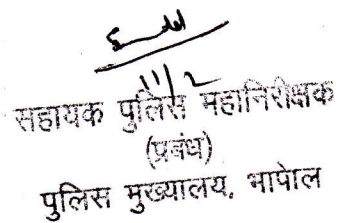 11/2
सहायक पुलिस महानिरीक्षक
(प्रबंध)
पुलिस मुख्यालय, भोपाल